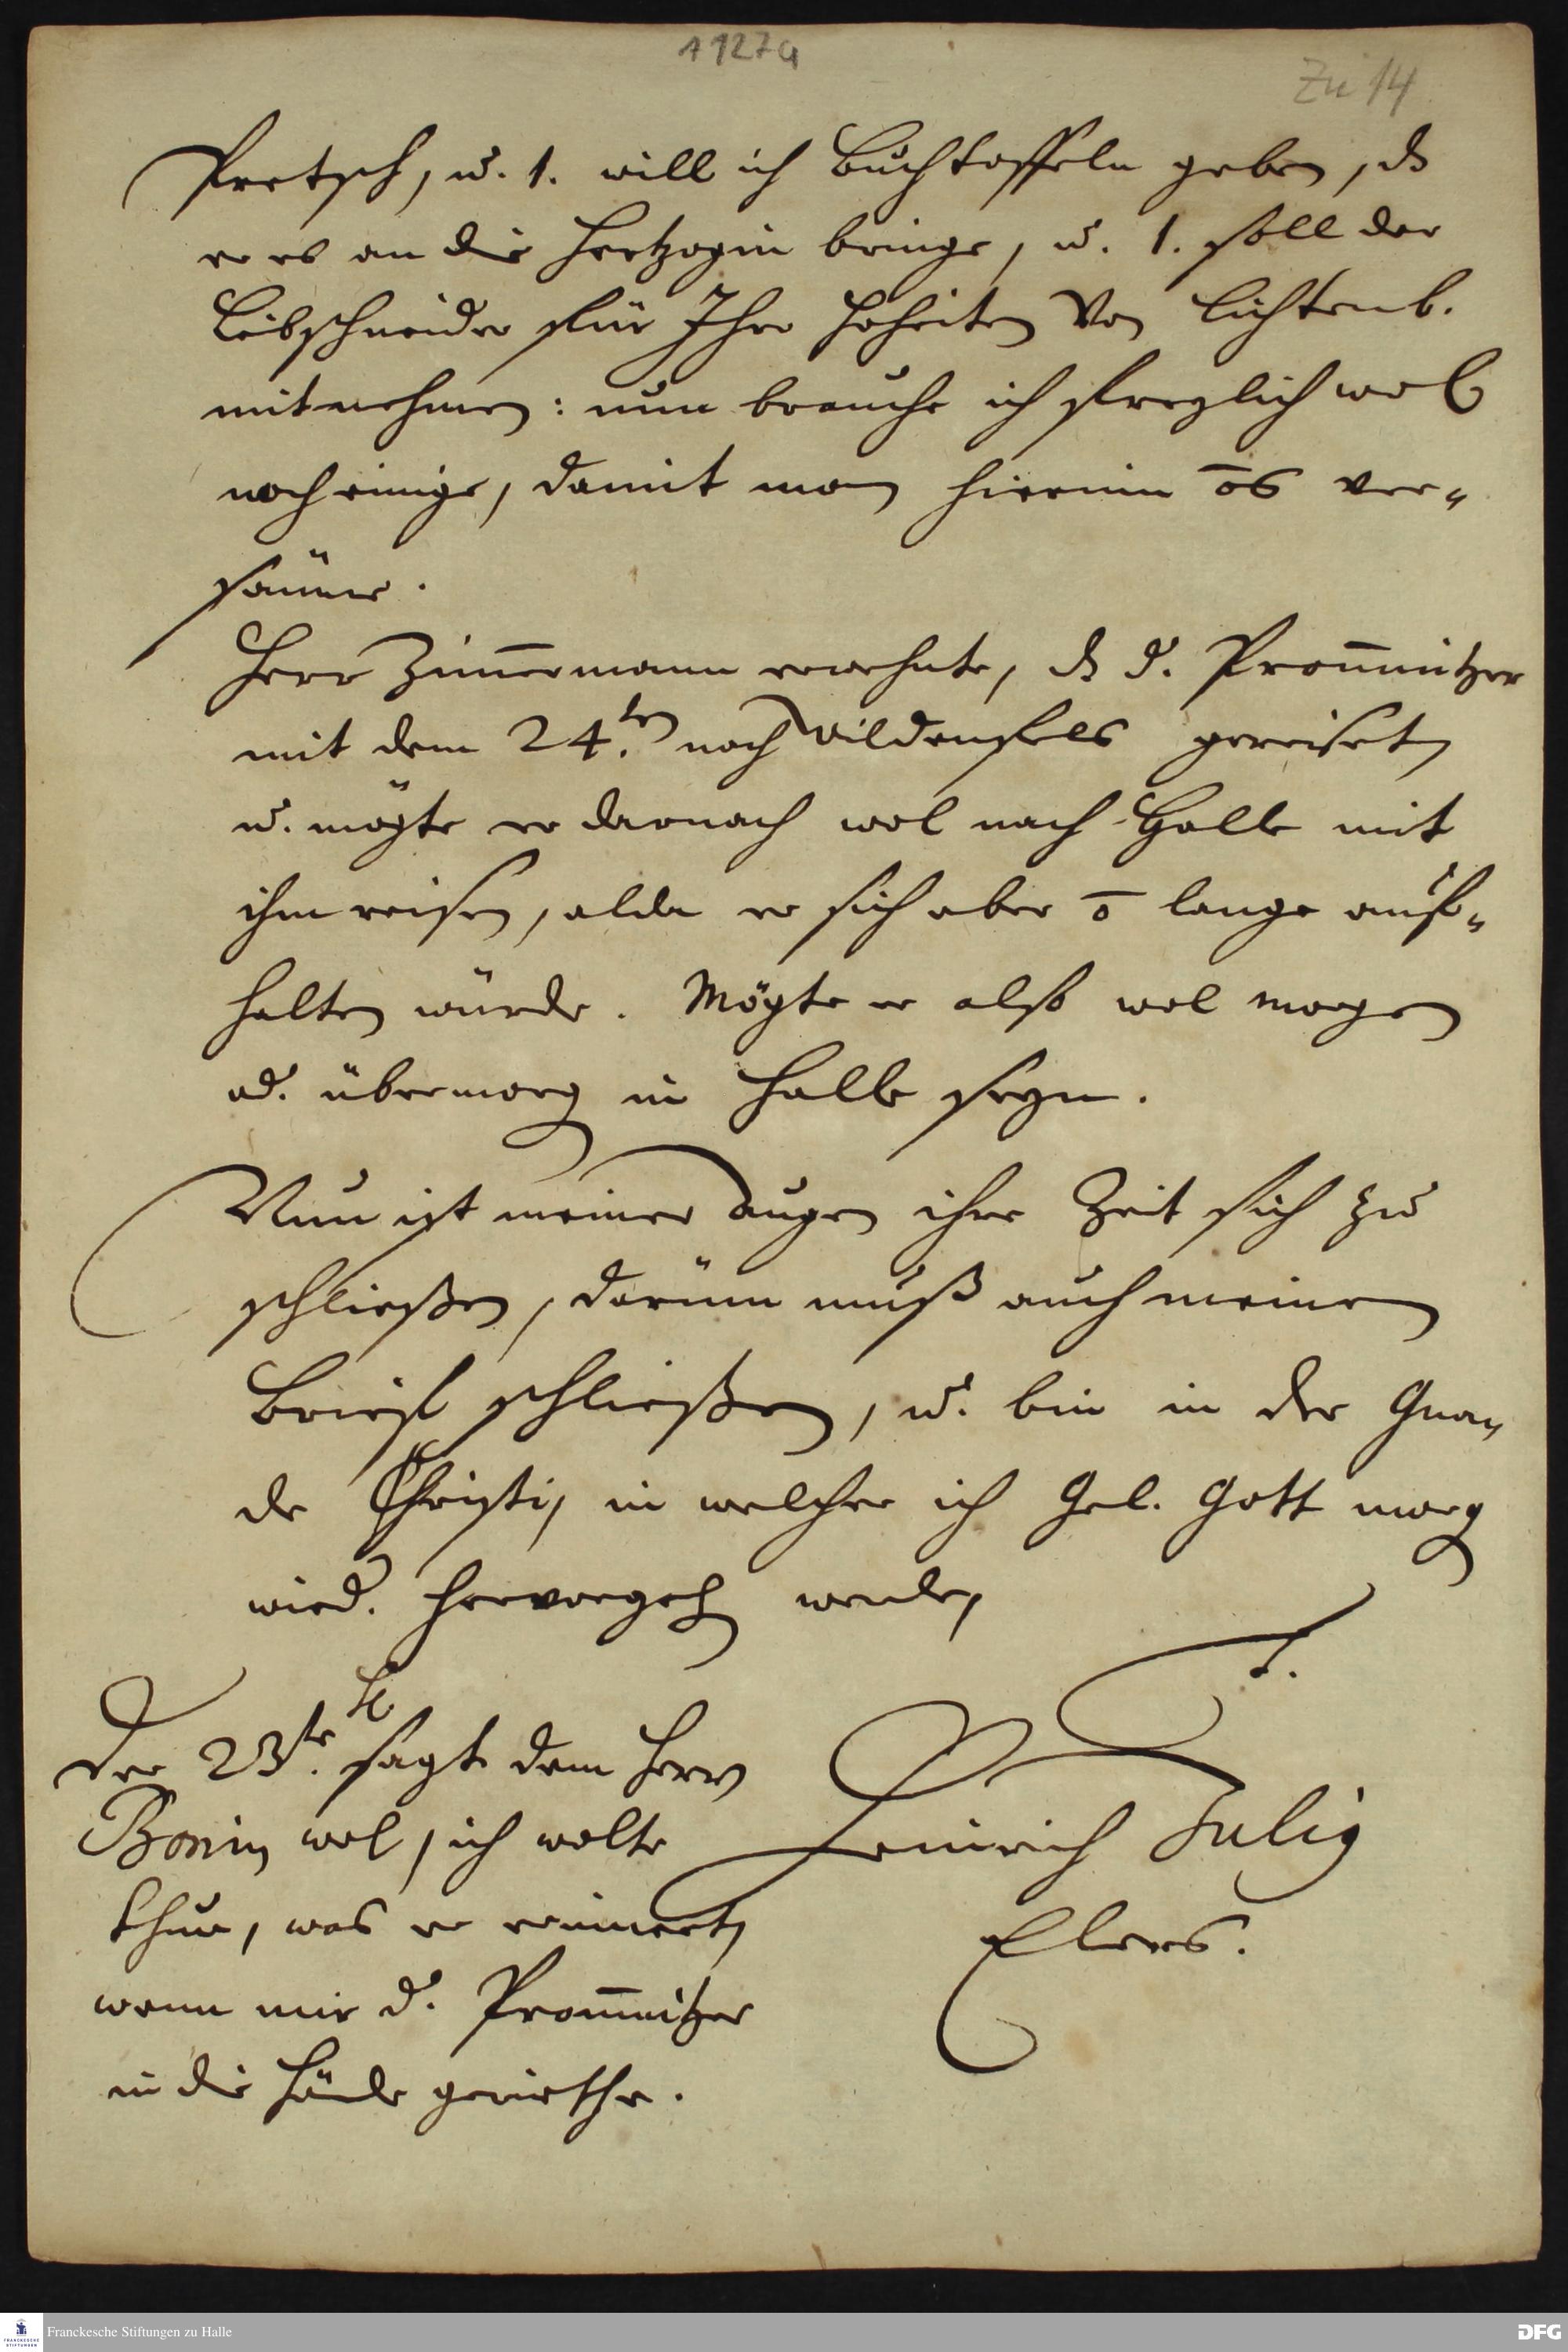 1127a
Zu 14
Pretsch, u. 1. will ich Buchtaffeln geben, dß
er es an die Hertzogin bringe, u. 1. soll der
Leibschneider für Ihre Hoheiten von Lichtenb.
mitnehmen: nun brauche ich freylich wol
noch einige, damit man hierinn ōs ver-
säume.
Herr Zim̄ermann erwehnte, dß d. Prom̄nitzer
mit dem 24.ten nach Wildenfels gereiset,
u. mögte er darnach wol nach Halle mit
ihm reisen, alda er sich aber ō lange auf-
halten würde. Mögte er also wol morgen
od. übermorg in Halle seyn.
Nun ist meiner Augen ihre Zeit sich zu
schließen, darüm muß auch meinen
Brief schließen, u. bin in der Gna-
de Christi, in welcher ich Gel. Gott morg
wied. hervorgeh werde,
Der 23te. sagte dem Herrn
Bonin wol, ich wolte
thun, was er erinnert,
wenn mir d. Prom̄nitzer
in die Hände geriethe.
Heinrich Julig
Elers.
Franckesche Stiftungen zu Halle
DFG